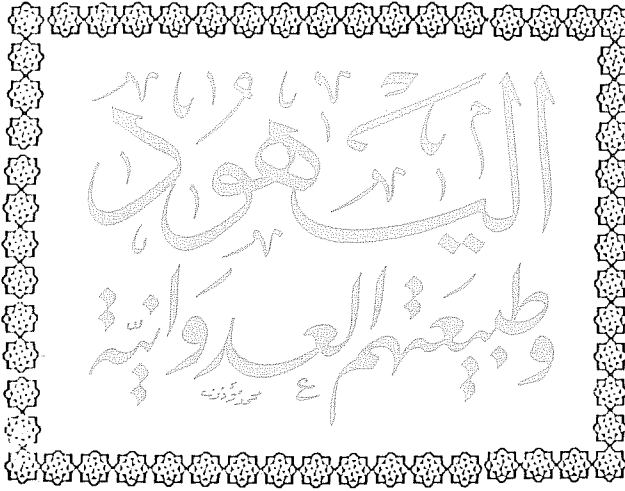 اليهود
وطبيعتهم العدوانية